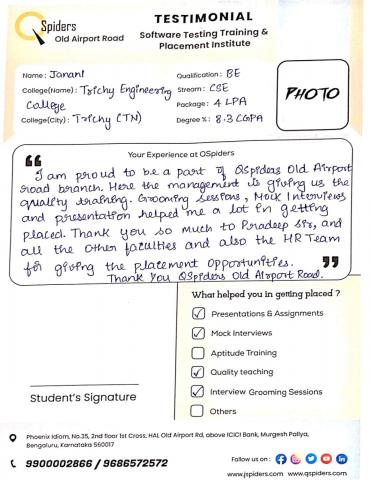 QSpiders
Old Airport Road
TESTIMONIAL
Software Testing Training &
Placement Institute
Name : Janani
College(Name) : Trichy Engineering
College
College(City) : Trichy (TN)
Qualification : BE
Stream : CSE
Package : 4 LPA
Degree % : 8.3 CGPA
PHOTO
Your Experience at QSpiders
“ I am proud to be a part of QSpiders Old Airport
road branch. Here the management is giving us the
quality training. Grooming sessions, Mock Interviews
and presentation helped me a lot in getting
placed. Thank you so much to Pradeep sir, and
all the other faculties and also the HR Team
for giving the placement opportunities. ”
Thank you QSpiders Old Airport Road.
What helped you in getting placed ?
Presentations & Assignments
Mock Interviews
Aptitude Training
Quality teaching
Interview Grooming Sessions
Others
Student's Signature
Phoenix Idiom, No.35, 2nd floor 1st Cross, HAL Old Airport Rd, above ICICI Bank, Murgesh Pallya,
Bengaluru, Karnataka 560017
9900002866 / 9686572572
Follow us on :
www.jspiders.com www.qspiders.com